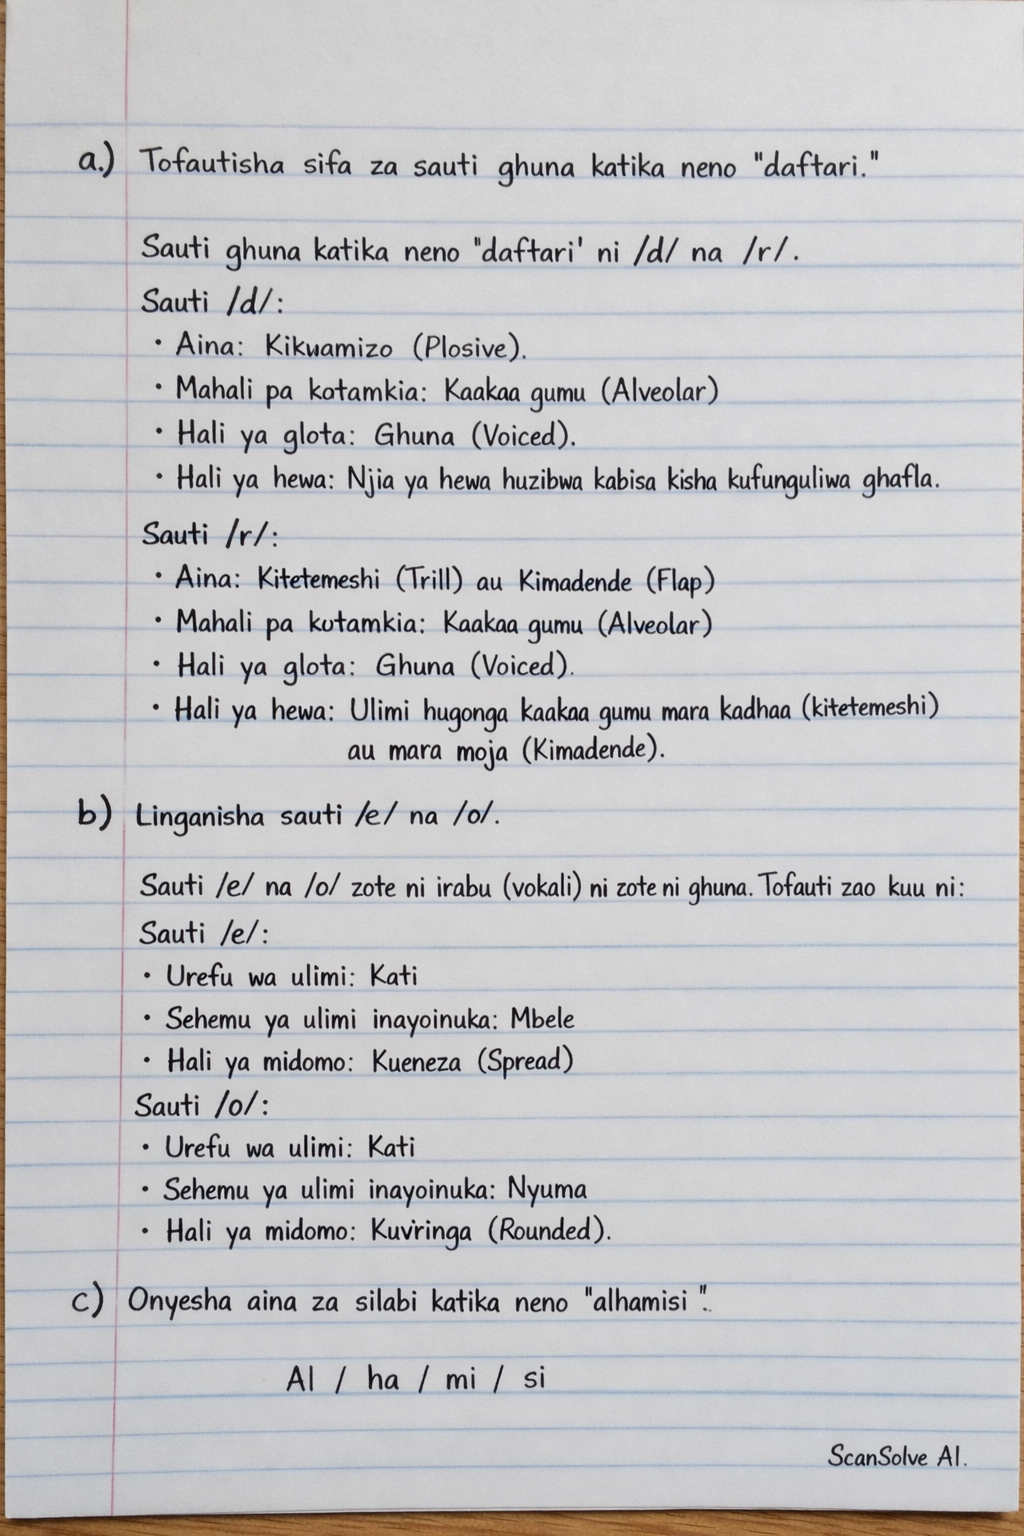 a.) Tofautisha sifa za sauti ghuna katika neno "daftari."
Sauti ghuna katika neno "daftari' ni /d/ na /r/.
Sauti /d/:
• Aina: Kikwamizo (Plosive).
• Mahali pa kotamkia: Kaakaa gumu (Alveolar)
• Hali ya glota: Ghuna (Voiced).
• Hali ya hewa: Njia ya hewa huzibwa kabisa kisha kufunguliwa ghafla.
Sauti /r/:
• Aina: Kitetemeshi (Trill) au Kimadende (Flap)
• Mahali pa kutamkia: Kaakaa gumu (Alveolar)
• Hali ya glota: Ghuna (Voiced).
• Hali ya hewa: Ulimi hugonga kaakaa gumu mara kadhaa (kitetemeshi)
au mara moja (Kimadende).
b) Linganisha sauti /e/ na /o/.
Sauti /e/ na /o/ zote ni irabu (vokali) ni zote ni ghuna. Tofauti zao kuu ni:
Sauti /e/:
• Urefu wa ulimi: Kati
• Sehemu ya ulimi inayoinuka: Mbele
• Hali ya midomo: Kueneza (Spread)
Sauti /o/:
• Urefu wa ulimi: Kati
• Sehemu ya ulimi inayoinuka: Nyuma
• Hali ya midomo: Kuviringa (Rounded).
c) Onyesha aina za silabi katika neno "alhamisi".
Al / ha / mi / si
ScanSolve AI.